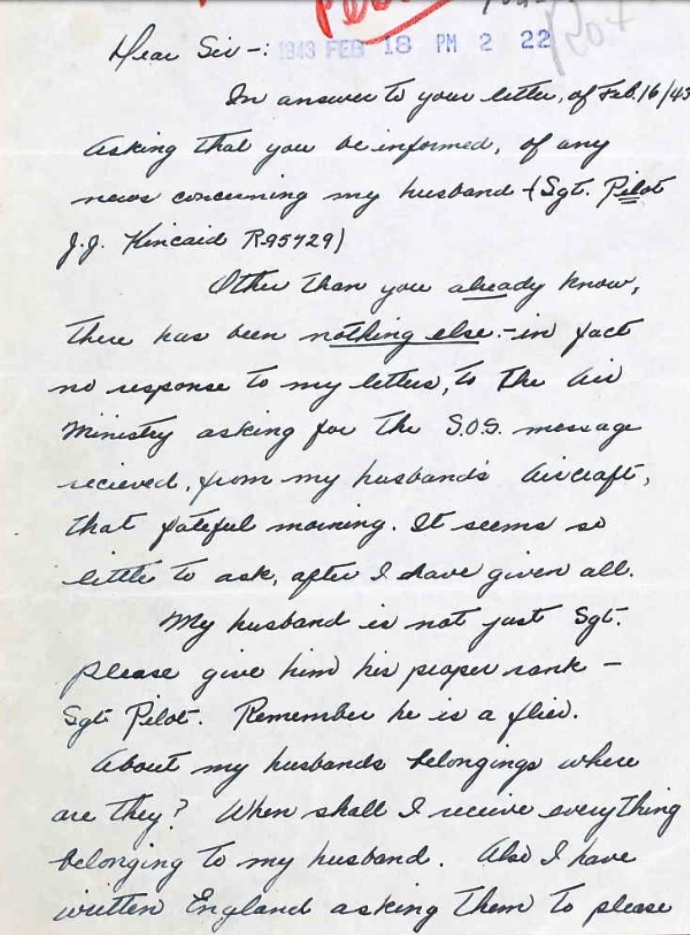 Dear Sir -:
1943 FEB 18 PM 2 22
In answer to your letter, of Feb. 16/43
asking that you be informed, of any
news concerning my husband - (Sgt. Pilot
J.J. Kincaid R95729)
Other than you already know,
there has been nothing else - in fact
no response to my letters, to the Air
Ministry asking for the S.O.S. message
recieved, from my husband's aircraft,
that fateful morning. It seems so
little to ask, after I have given all.
My husband is not just Sgt.
please give him his proper rank -
Sgt Pilot. Remember he is a flier.
About my husbands belongings where
are they? When shall I receive everything
belonging to my husband. Also I have
written England asking them to please